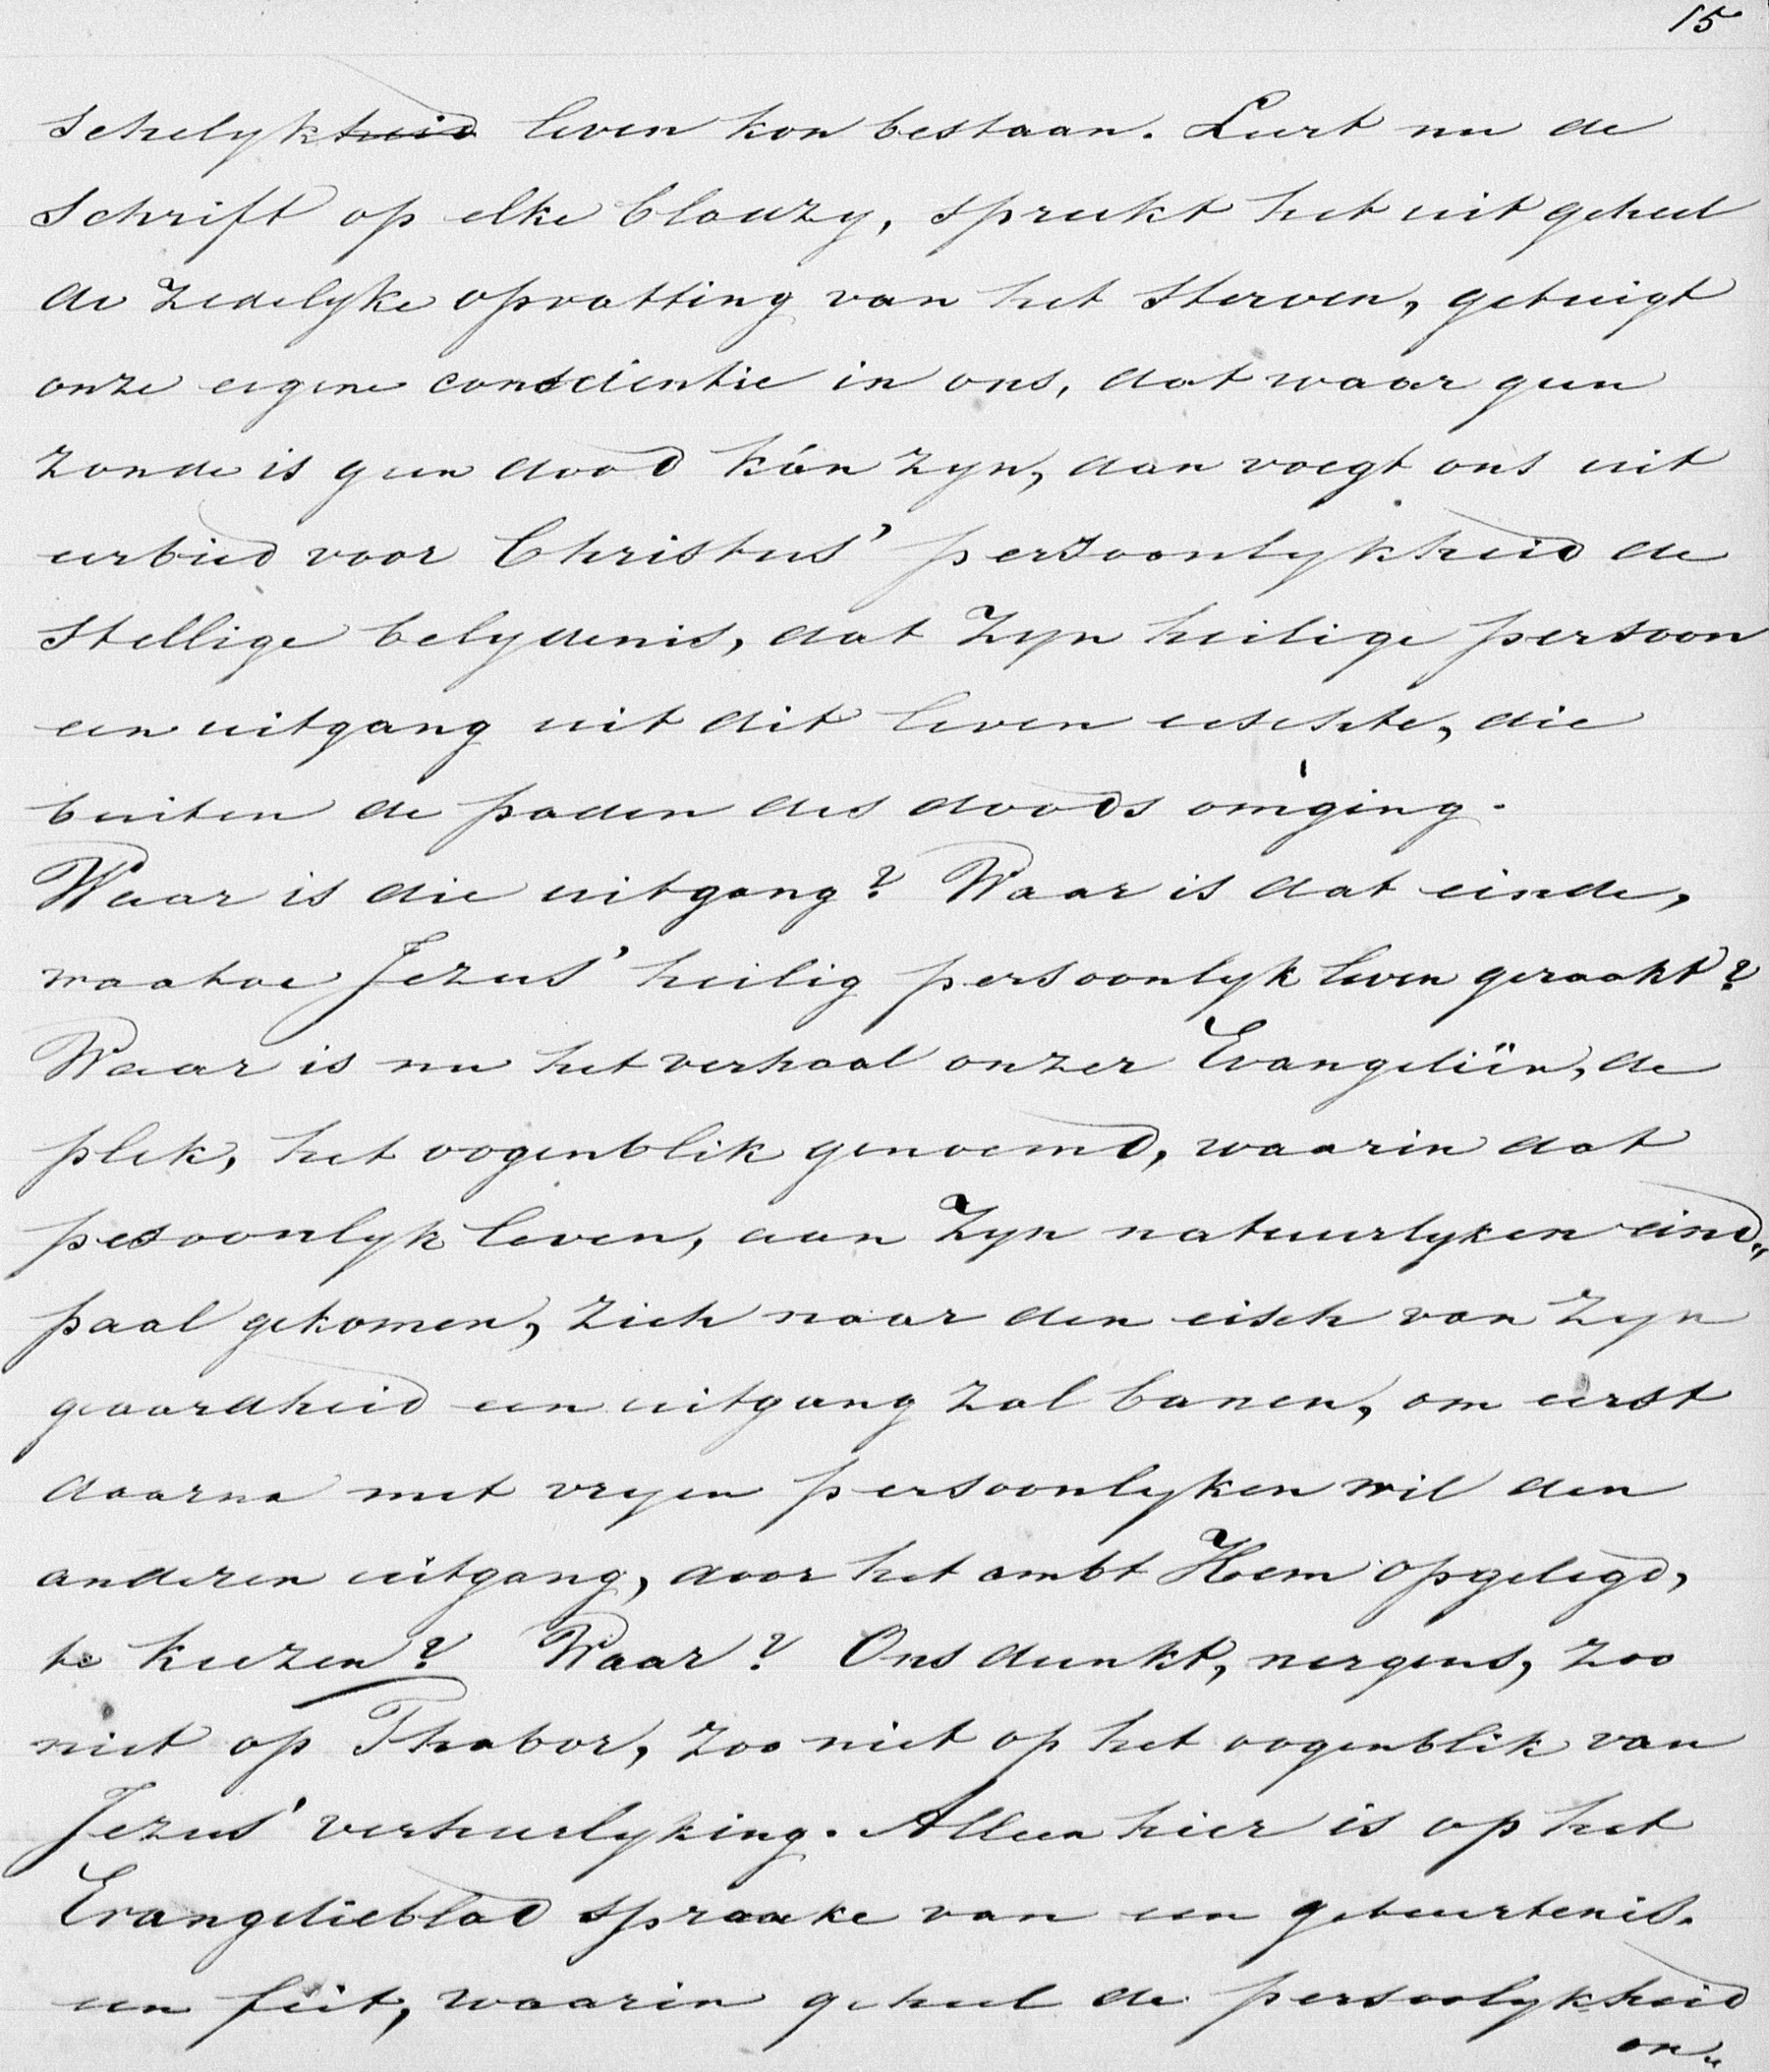 15
schelykheid leven kon bestaan. Leert nu de
Schrift op elke bladzy, spreekt het uit geheel
de zedelyke opvatting van het sterven, getuigt
onze eigene conscientie in ons, dat waar geen
zonde is geen dood kán zyn, dan voegt ons uit
eerbied voor Christus' persoonlykheid de
stellige belydenis, dat Zyn heilige persoon
een uitgang uit dit leven eischte, die
buiten de paden des doods omging.
Waar is die uitgang? Waar is dat einde,
waatoe Jezus' heilig persoonlyk leven geraakt?
Waar is nu het verhaal onzer Evangeliën, de
plek, het oogenblik genoemd, waarin dat
pesoonlyk leven, aan Zyn natuurlyken eind„
paal gekomen, zich naar den eisch van zyn
geaardheid een uitgang zal banen, om eerst
daarna met vryen persoonlyken wil den
anderen uitgang, door het ambt Hem opgelegd,
te kiezen? Waar? Ons dunkt, nergens, zoo
niet op Thabor, zoo niet op het oogenblik van
Jezus' verheerlyking. Alleen hier is op het
Evangelieblad spraake van een gebeurtenis.
een feit, waarin geheel de persoolykheid
on„